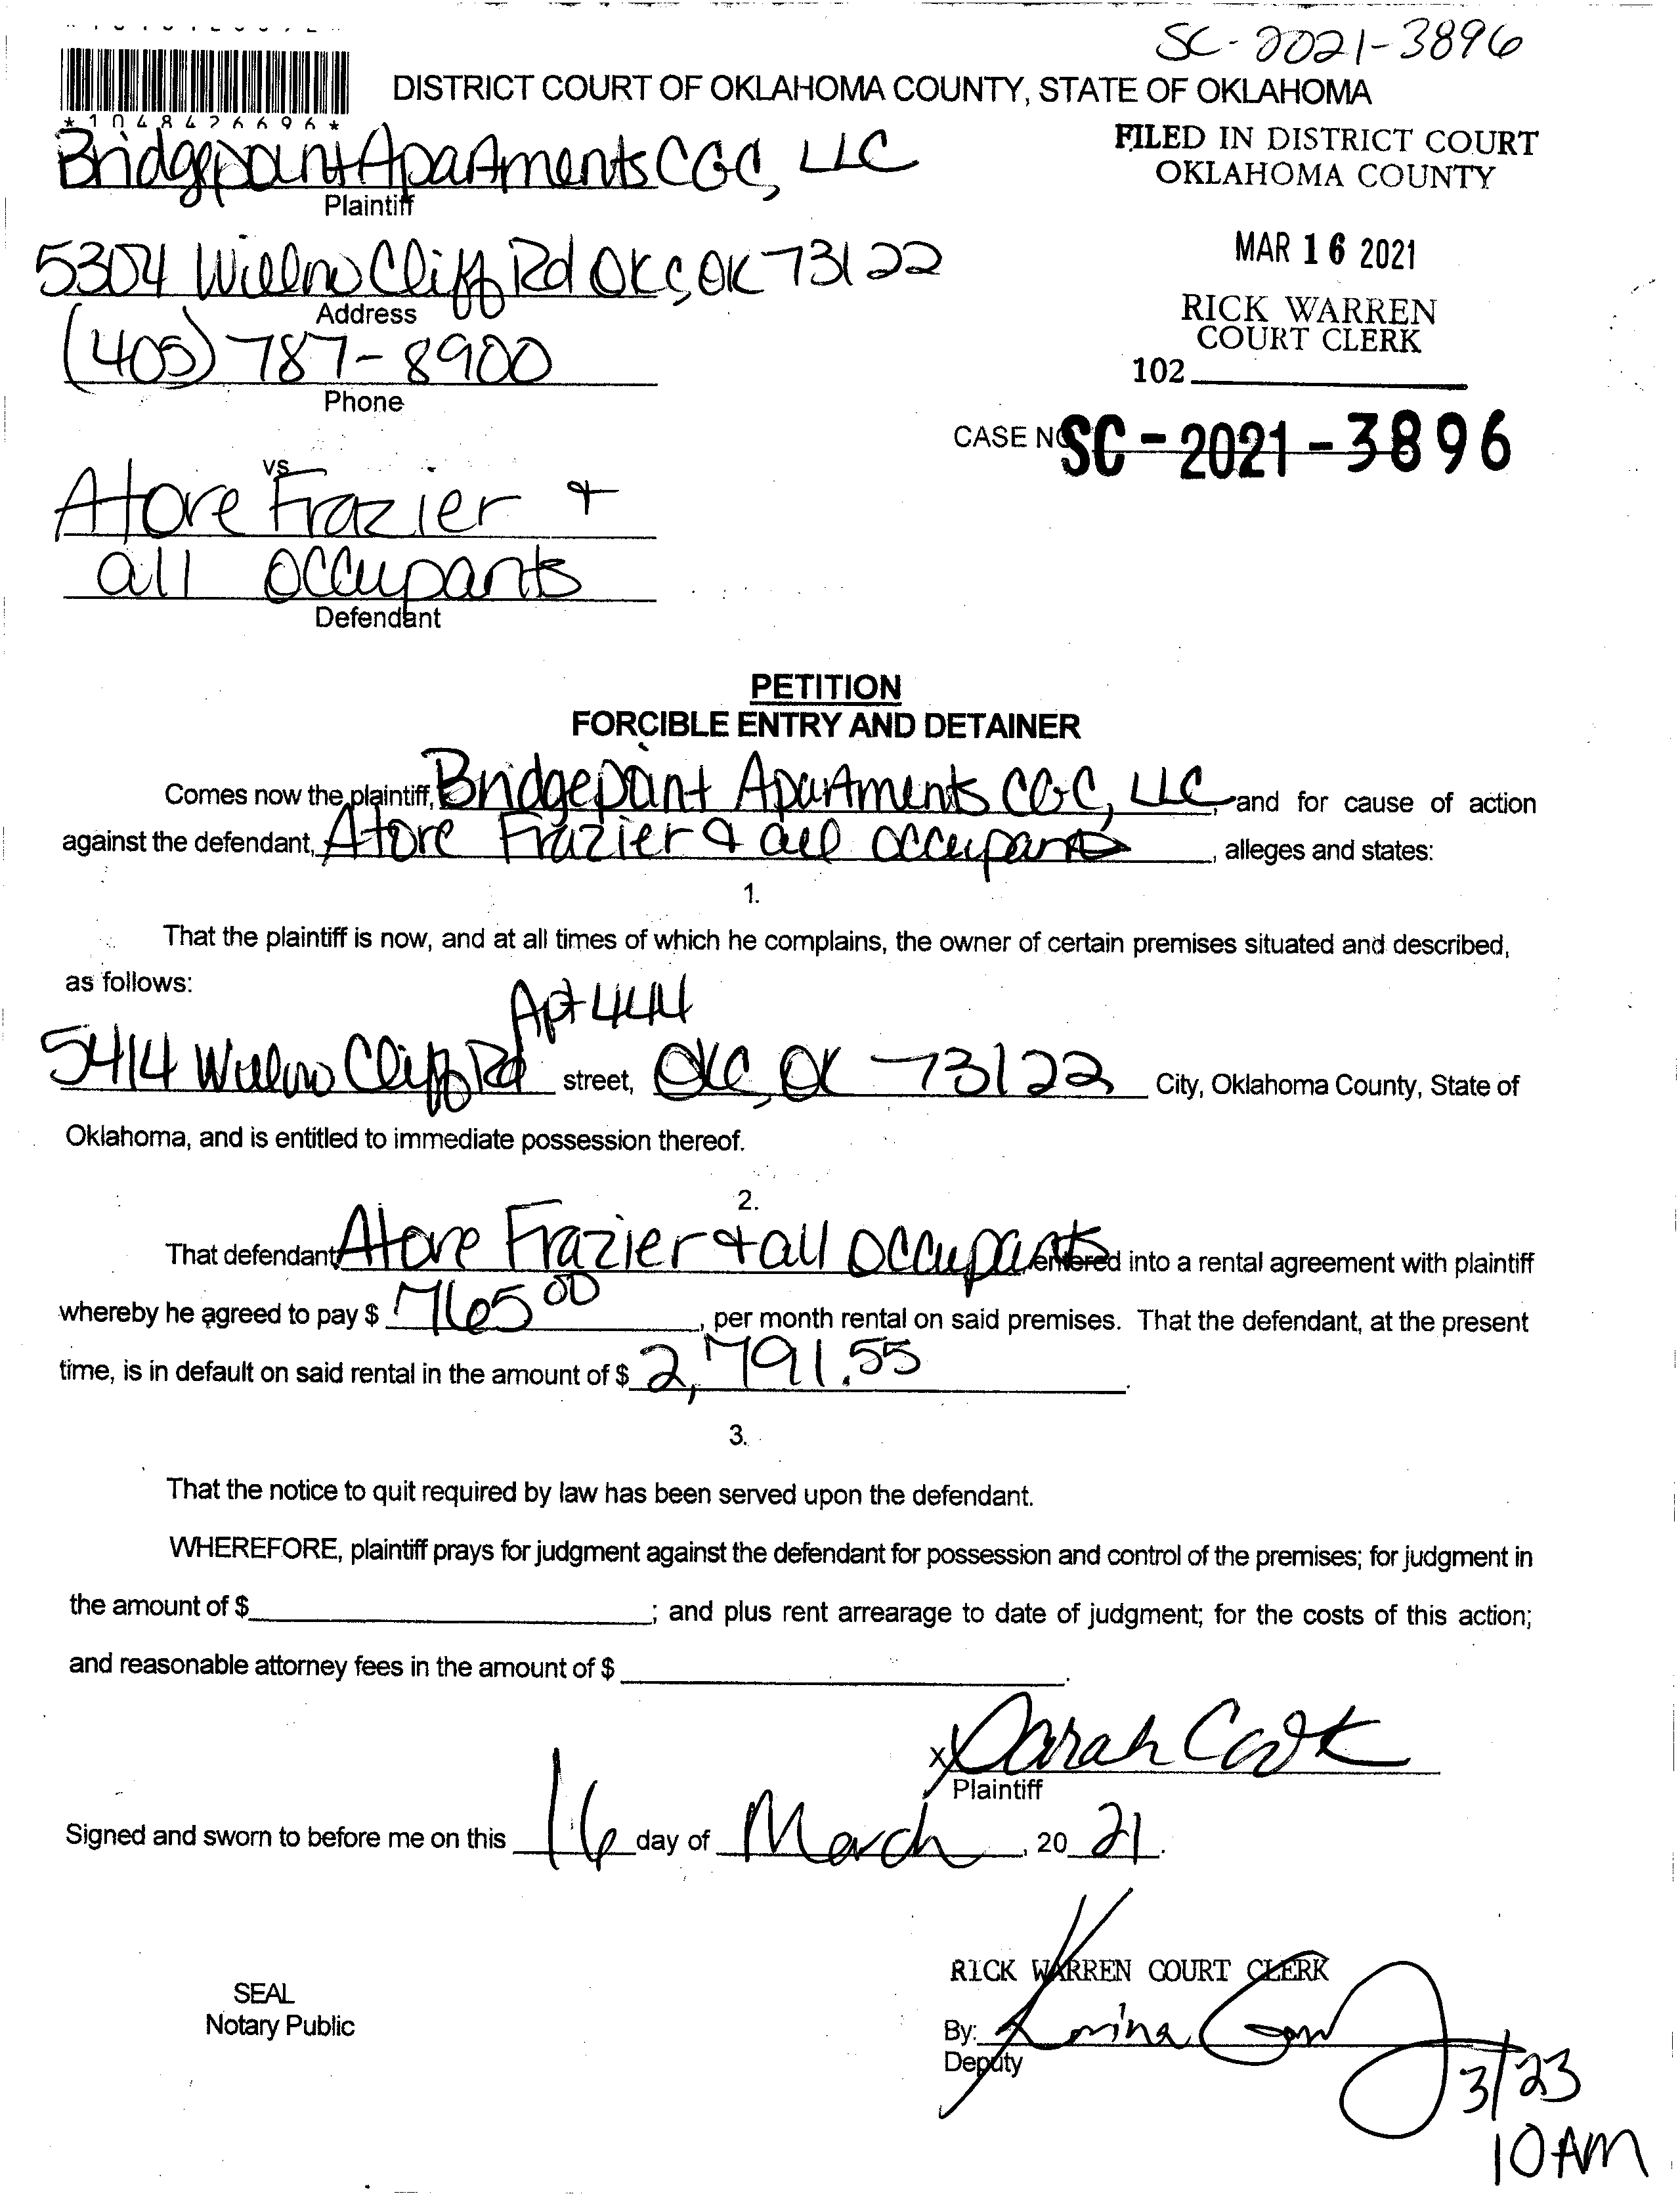 SC-2021-3896
DISTRICT COURT OF OKLAHOMA COUNTY, STATE OF OKLAHOMA
*1048426696*
Bridgepoint Apartments CGC, LLC
Plaintiff
FILED IN DISTRICT COURT
OKLAHOMA COUNTY
5304 Willow Cliff Rd OKC, OK 73122
Address
MAR 16 2021
(405) 787-8900
Phone
RICK WARREN
COURT CLERK
102
CASE NO SC-2021-3896
vs
Atore Frazier +
all occupants
Defendant
PETITION
FORCIBLE ENTRY AND DETAINER
Comes now the plaintiff, Bridgepoint Apartments CGC, LLC, and for cause of action
against the defendant, Atore Frazier & all occupants, alleges and states:
1.
That the plaintiff is now, and at all times of which he complains, the owner of certain premises situated and described,
as follows:
Apt 444
5414 Willow Cliff Rd street, OKC, OK 73122 City, Oklahoma County, State of
Oklahoma, and is entitled to immediate possession thereof.
2.
That defendant Atore Frazier + all occupants entered into a rental agreement with plaintiff
whereby he agreed to pay $ 765 00, per month rental on said premises. That the defendant, at the present
time, is in default on said rental in the amount of $ 2,791.55.
3.
That the notice to quit required by law has been served upon the defendant.
WHEREFORE, plaintiff prays for judgment against the defendant for possession and control of the premises; for judgment in
the amount of $ ; and plus rent arrearage to date of judgment; for the costs of this action;
and reasonable attorney fees in the amount of $ .
x Sarah Cook
Plaintiff
Signed and sworn to before me on this 16 day of March, 20 21.
RICK WARREN COURT CLERK
SEAL
Notary Public
By:
Deputy
3/23
10AM